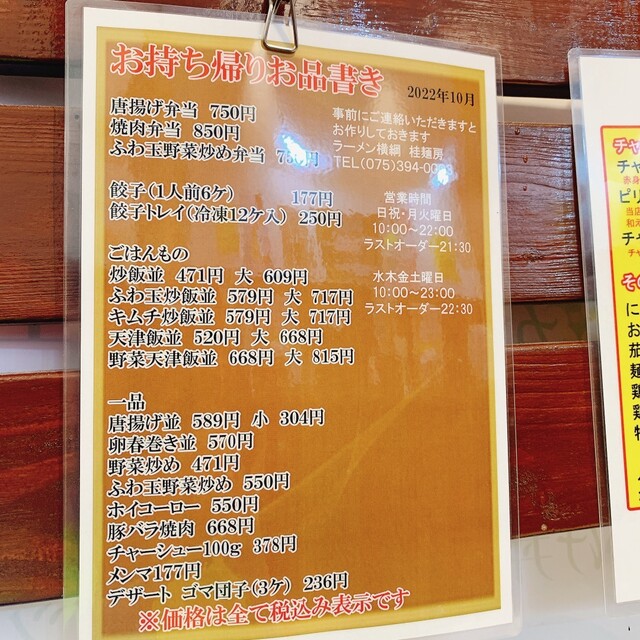 お持ち帰りお品書き
2022年10月
唐揚げ弁当 750円
焼肉弁当 850円
ふわ玉野菜炒め弁当
事前にご連絡いただきますと
お作りしておきます
ラーメン横綱 桂麺房
TEL(075)394-0
餃子(1人前6ケ) 177円
餃子トレイ(冷凍12ケ入) 250円
営業時間
日祝・月火曜日
10:00～22:00
ラストオーダー21:30
水木金土曜日
10:00～23:00
ラストオーダー22:30
ごはんもの
炒飯並 471円 大 609円
ふわ玉炒飯並 579円 大 717円
キムチ炒飯並 579円 大 717円
天津飯並 520円 大 668円
野菜天津飯並 668円 大 815円
一品
唐揚げ並 589円 小 304円
卵春巻き並 570円
野菜炒め 471円
ふわ玉野菜炒め 550円
ホイコーロー 550円
豚バラ焼肉 668円
チャーシュー100g 378円
メンマ177円
デザート ゴマ団子(3ケ) 236円
※価格は全て税込み表示です
チャ
チャ
赤身
ピリ
当店
和え
チャ
チャ
その
に
お
茄
麺
鶏
鶏